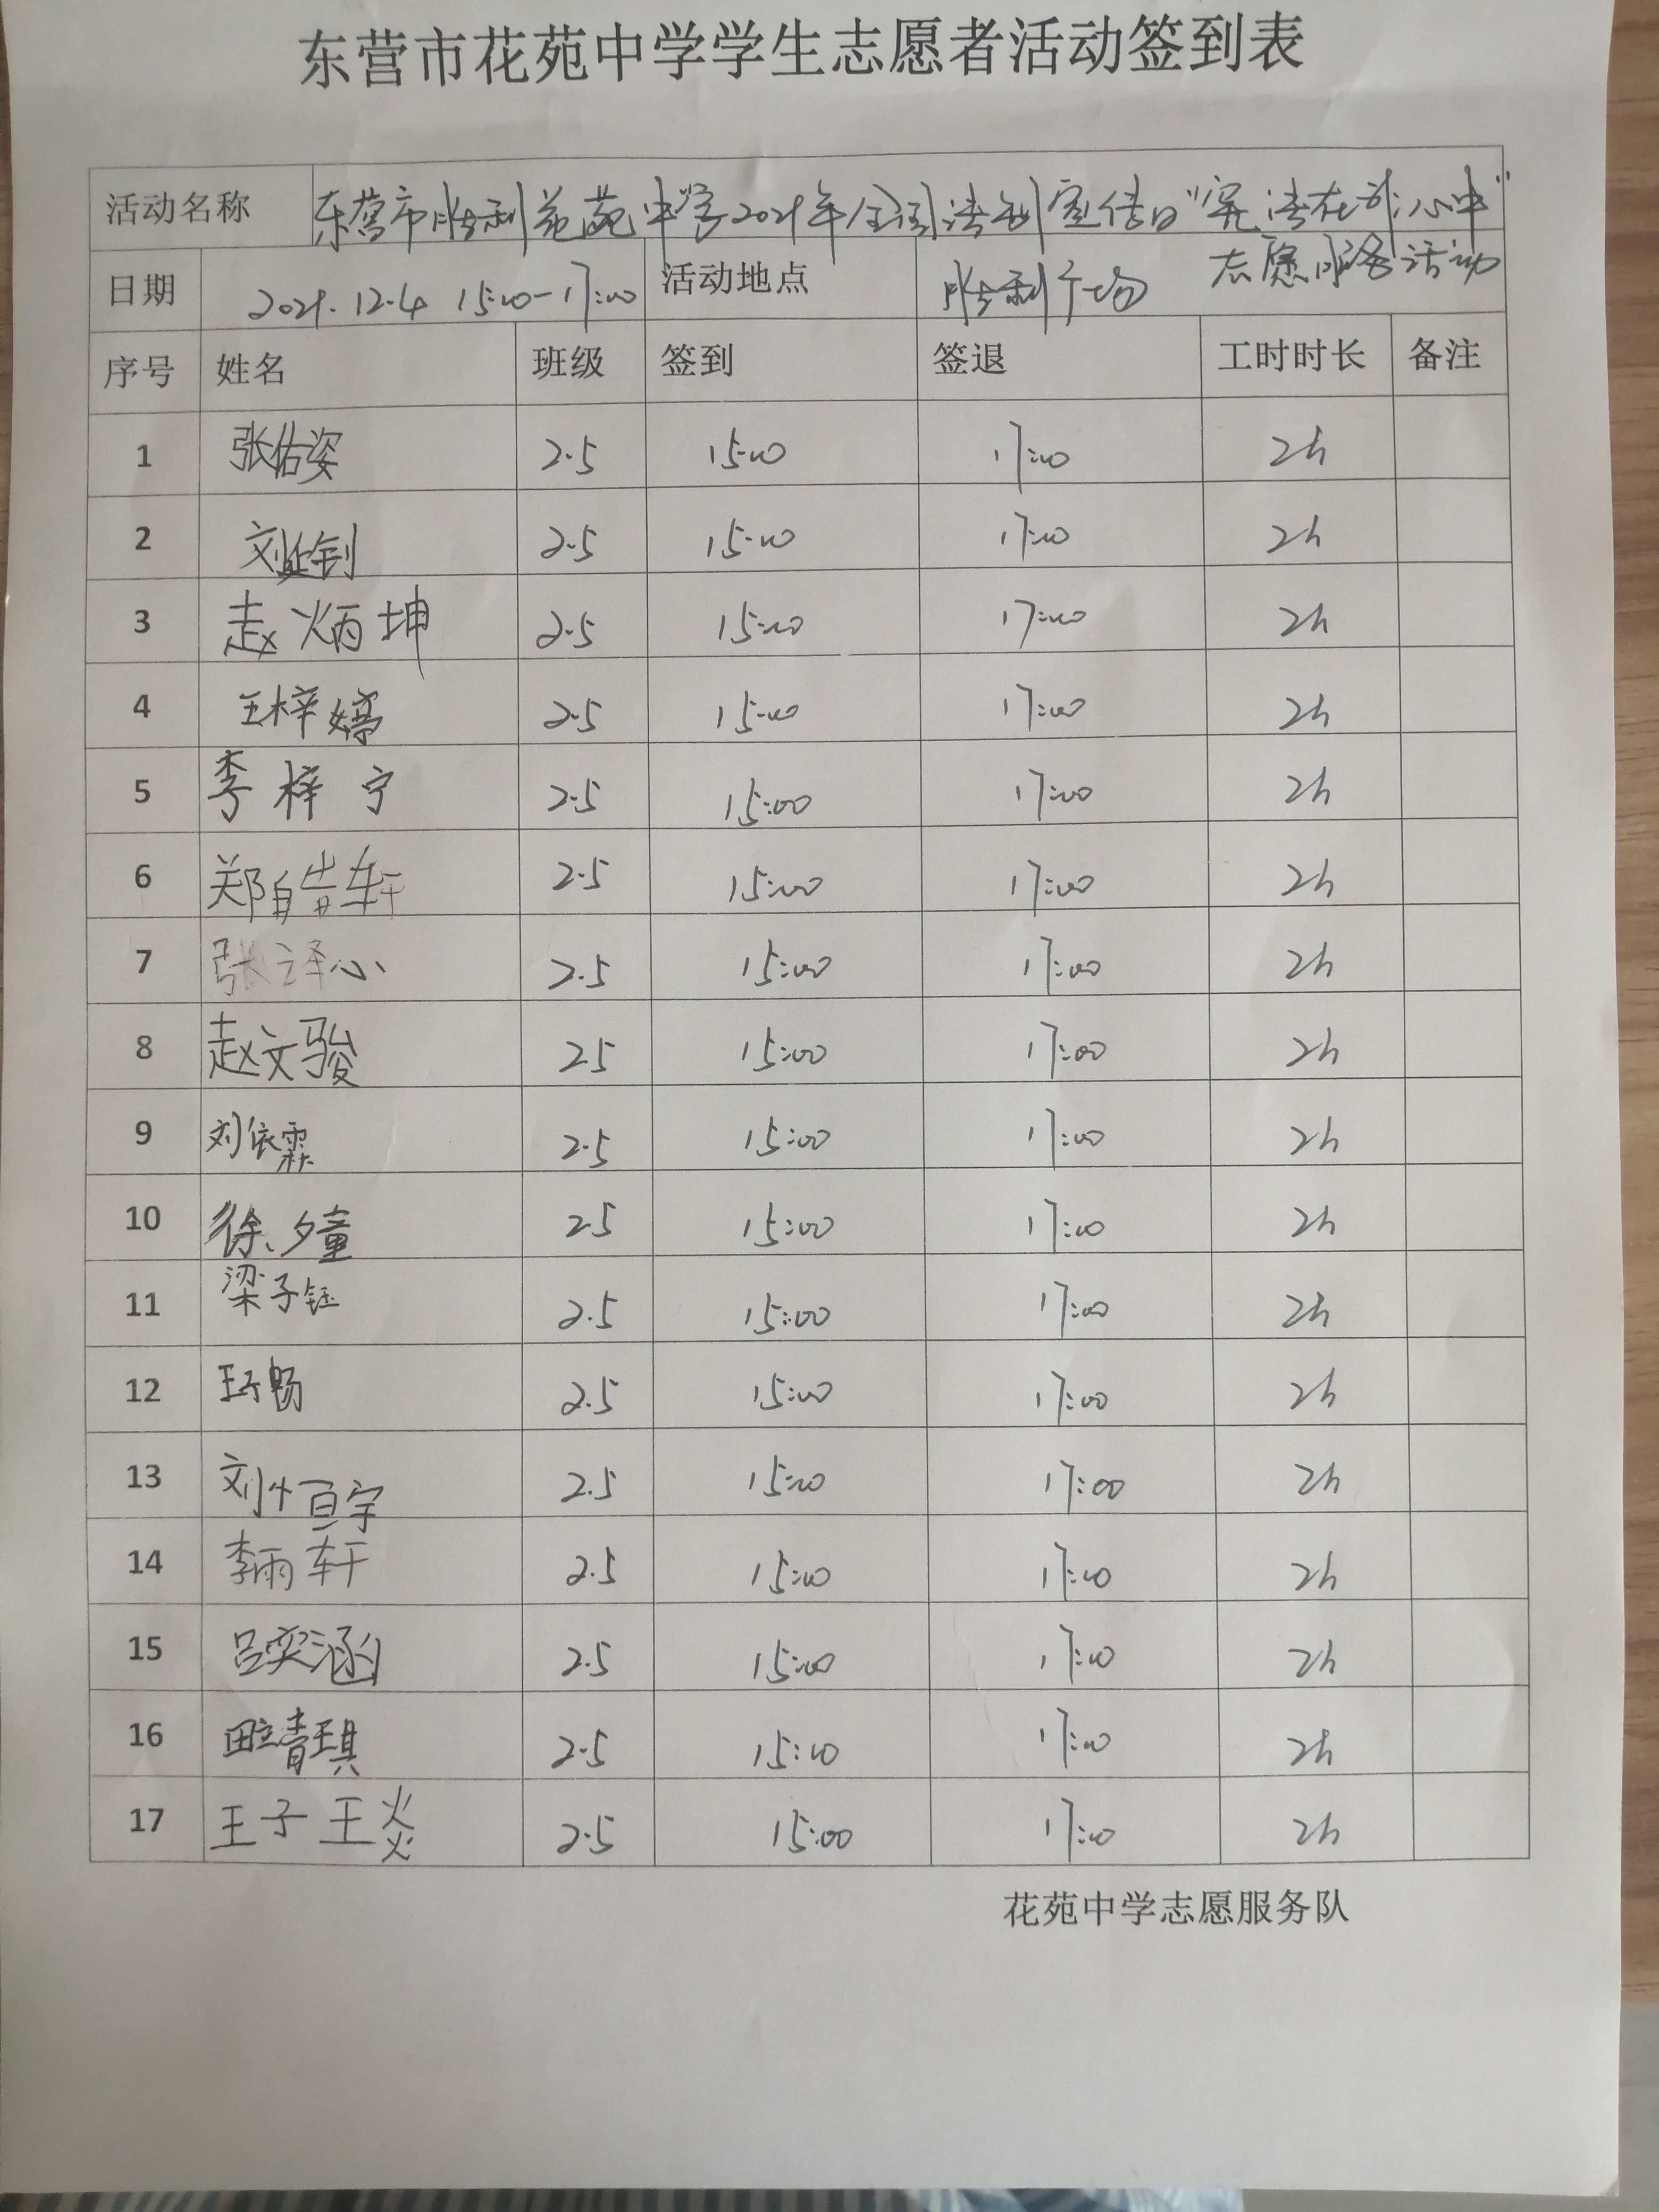 东营市花苑中学学生志愿者活动签到表
活动名称 东营市胜利花苑中学2021年全国法制宣传日"宪法在我心中"
志愿服务活动
日期 2021.12.4 15:00-17:00 活动地点 胜利广场
序号 姓名 班级 签到 签退 工时时长 备注
1 张佑姿 2.5 15:00 17:00 2h
2 刘延钊 2.5 15:00 17:00 2h
3 赵炳坤 2.5 15:00 17:00 2h
4 王梓婷 2.5 15:00 17:00 2h
5 李梓宁 2.5 15:00 17:00 2h
6 郑皓轩 2.5 15:00 17:00 2h
7 张译心 2.5 15:00 17:00 2h
8 赵文骏 2.5 15:00 17:00 2h
9 刘依霖 2.5 15:00 17:00 2h
10 徐夕童 2.5 15:00 17:00 2h
11 梁子钰 2.5 15:00 17:00 2h
12 2.5 15:00 17:00 2h
13 刘恒宇 2.5 15:00 17:00 2h
14 李雨轩 2.5 15:00 17:00 2h
15 吕奕涵 2.5 15:00 17:00 2h
16 2.5 15:00 17:00 2h
17 王子琰 2.5 15:00 17:00 2h
花苑中学志愿服务队